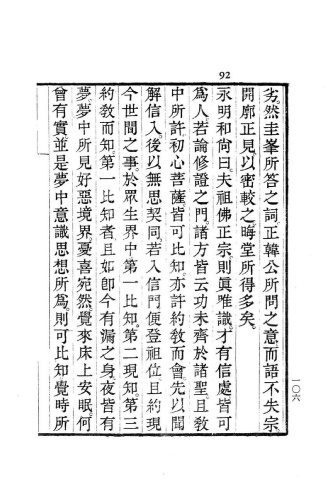 92
劣然圭峯所答之詞正韓公所問之意而語不失宗
開廓正見以密較之晦堂所得多矣
永明和尚曰夫祖佛正宗則眞唯識才有信處皆可
爲人若論修證之門諸方皆云功未齊於諸聖且敎
中所許初心菩薩皆可比知亦許約敎而會先以聞
解信入後以無思契同若入信門便登祖位且約現
今世間之事於眾生界中第一比知第二現知第三
約敎而知第一比知者且如卽今有漏之身夜皆有
夢夢中所見好惡境界憂喜宛然覺來床上安眠何
曾有實並是夢中意識思想所爲則可比知覺時所
一〇六